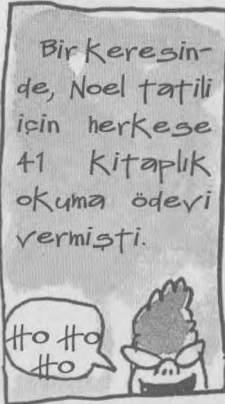 Bir keresin-
de, Noel tatili
için herkese
41 kitaplık
okuma ödevi
vermişti.
Ho Ho
Ho